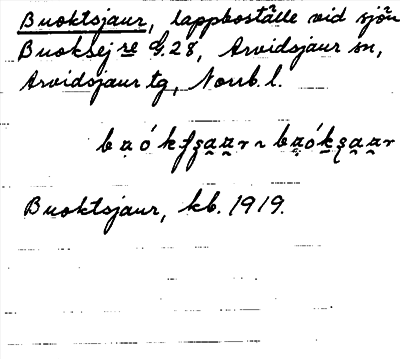 Buoktsjaur, lappboställe vid sjön
Buoksejre G.28, Arvidsjaur sn,
Arvidsjaur tg, Norrb. l.
Buoktsjaur, kb. 1919.